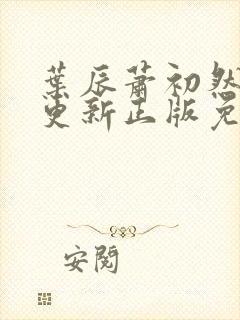 葉辰蕭初然
更新正版免
安閱